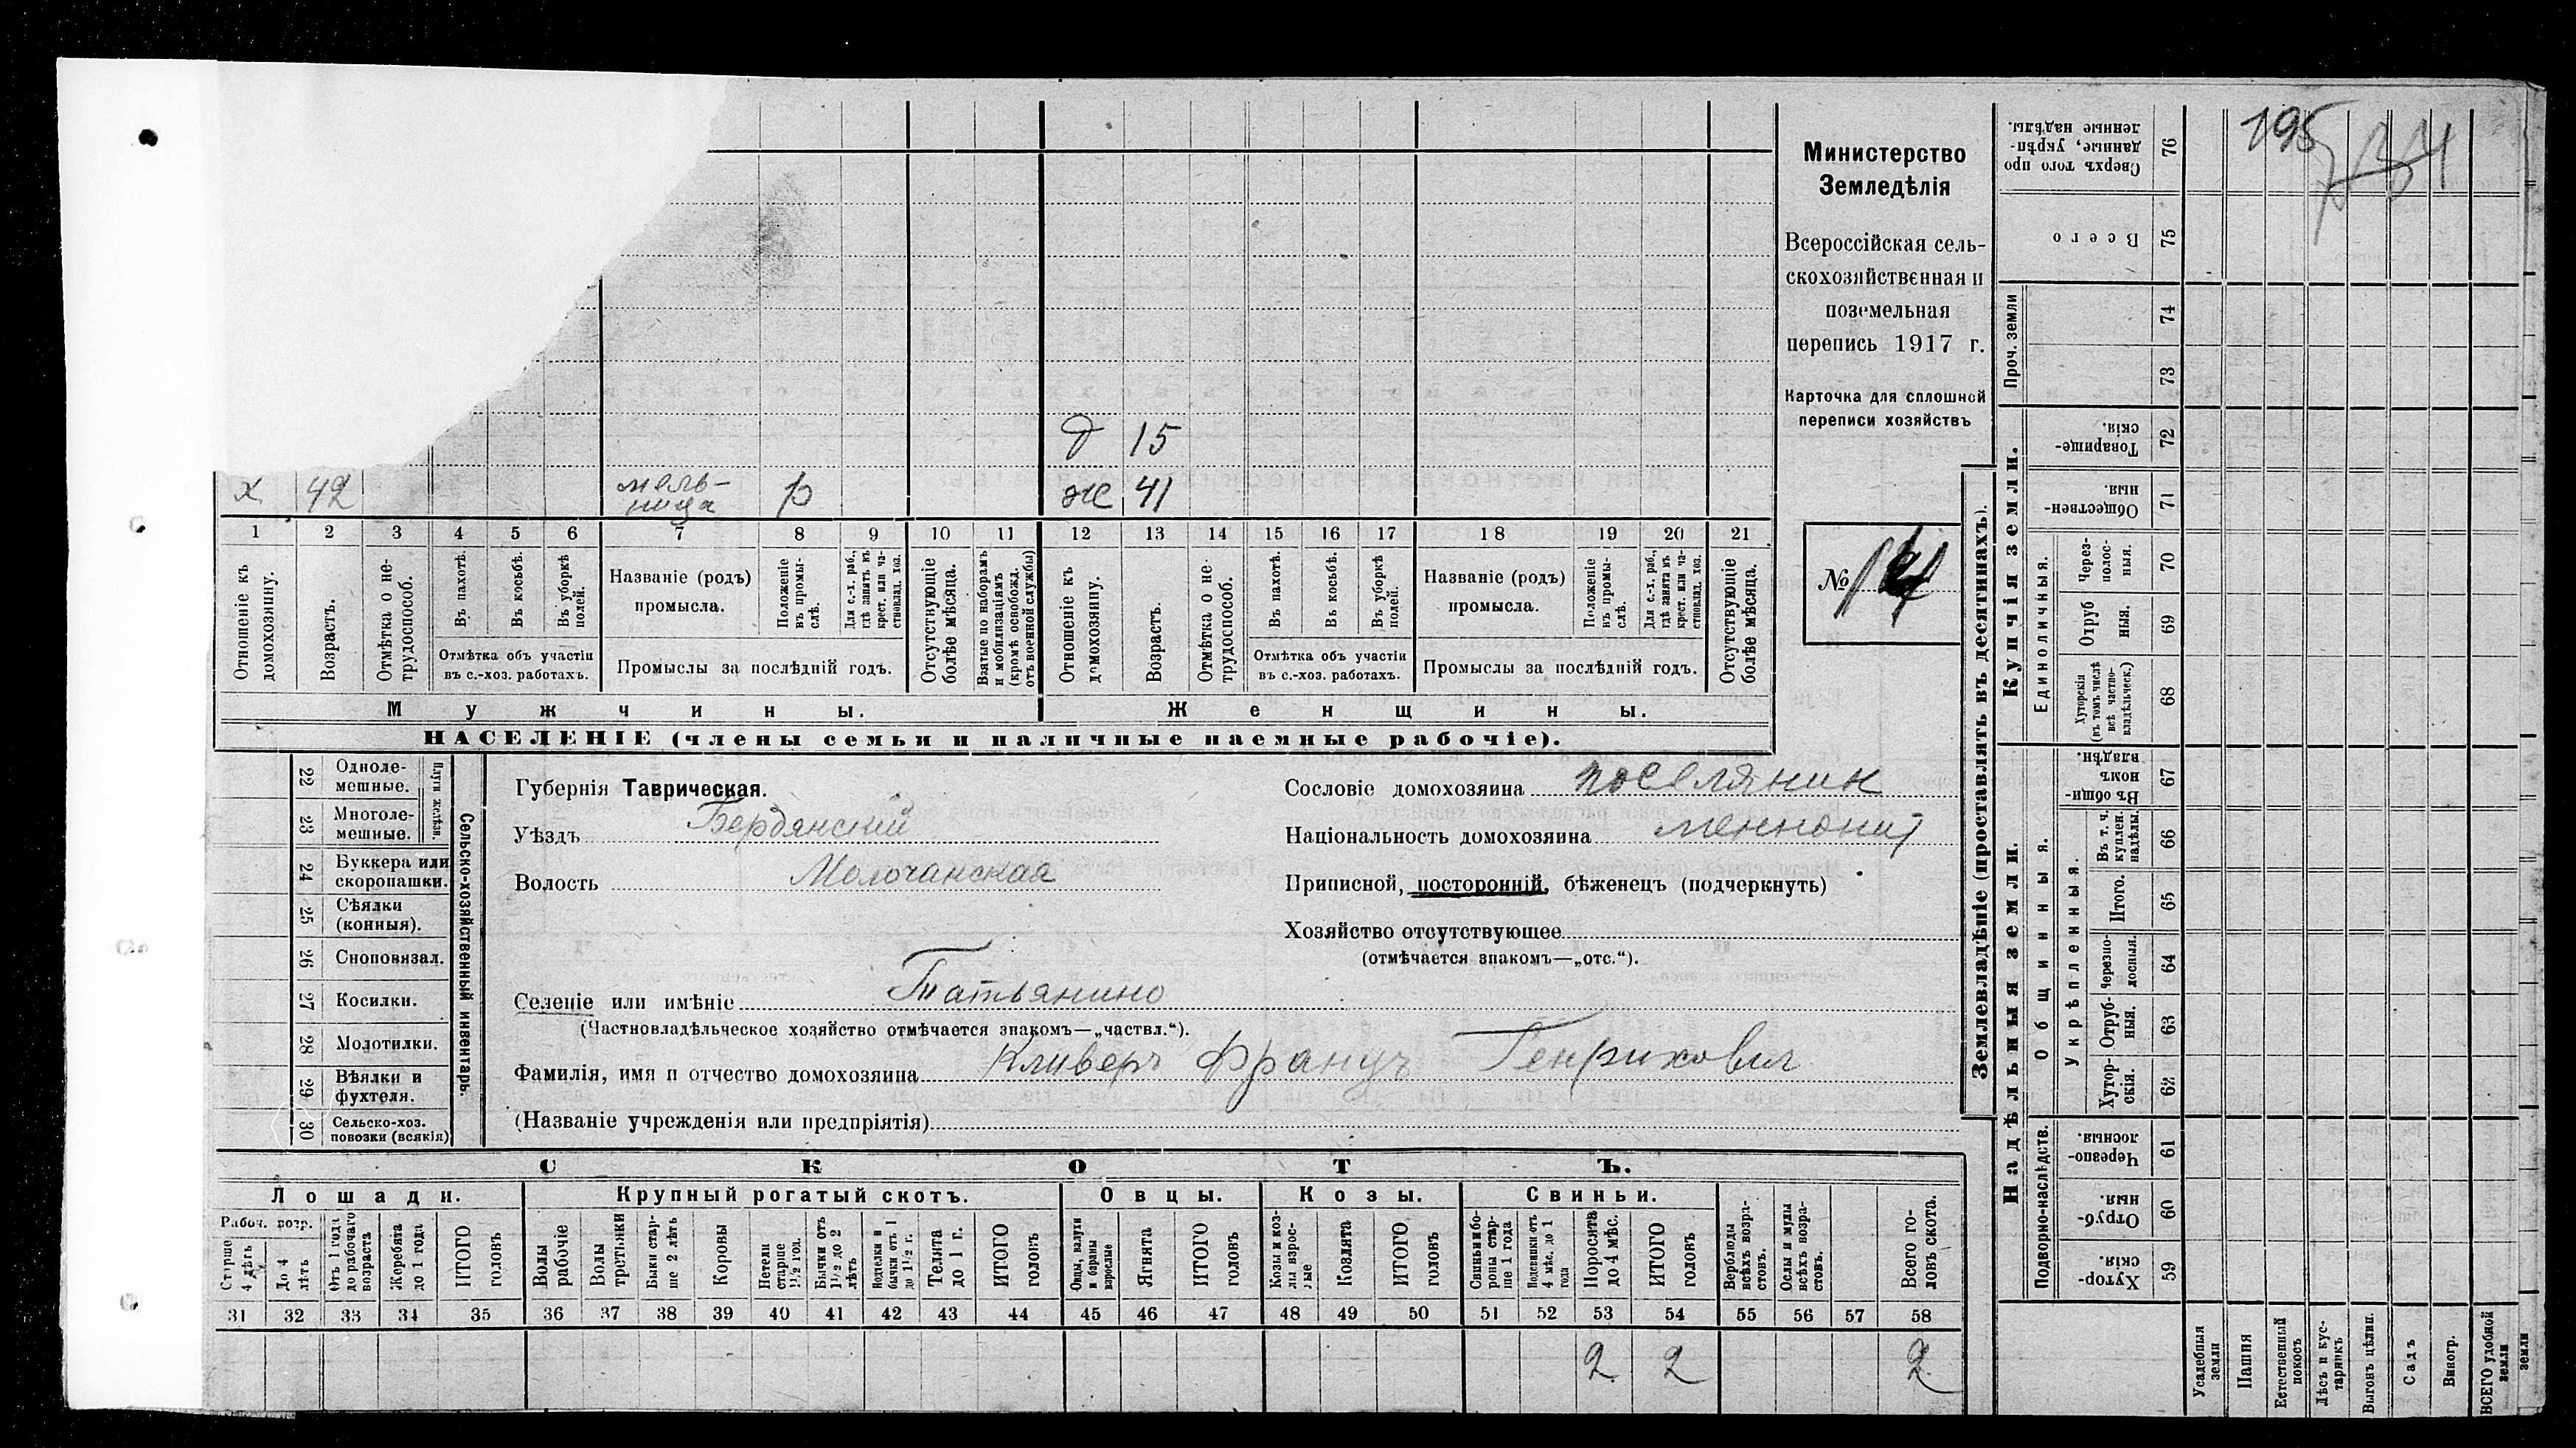 195
Министерство
Земледѣлія
Всероссійская сель-
скохозяйственная и
поземельная
перепись 1917 г.
Карточка для сплошной
переписи хозяйствъ
№ 14
д 15
х 42 мель-
ница р ж 41
1 2 3 4 5 6 7 8 9 10 11 12 13 14 15 16 17 18 19 20 21
Отношеніе къ
домохозяину.
Возрастъ.
Отмѣтка о не-
трудоспособ.
Въ пахотѣ.
Въ косьбѣ.
Въ уборкѣ
полей.
Отмѣтка объ участіи
въ с.-хоз. работахъ.
Названіе (родъ)
промысла.
Положеніе
въ промы-
слѣ.
Для с.-х. раб.,
гдѣ занятъ въ
крест. или ча-
стновлад. хоз.
Промыслы за послѣдній годъ.
Отсутствующіе
болѣе мѣсяца.
Взятые по наборамъ
и мобилизаціямъ
(кромѣ освобожд.
отъ военной службы)
Отношеніе къ
домохозяину.
Возрастъ.
Отмѣтка о не-
трудоспособ.
Въ пахотѣ.
Въ косьбѣ.
Въ уборкѣ
полей.
Отмѣтка объ участіи
въ с.-хоз. работахъ.
Названіе (родъ)
промысла.
Положеніе
въ промы-
слѣ.
Для с.-х. раб.,
гдѣ занята въ
крест. или ча-
стновлад. хоз.
Промыслы за послѣдній годъ.
Отсутствующіе
болѣе мѣсяца.
Мужчины.
Женщины.
НАСЕЛЕНІЕ (члены семьи и наличные наемные рабочіе).
Сельско-хозяйственный инвентарь.
Плуги желѣзн.
22 Одноле-
мешные.
23 Многоле-
мешные.
24 Буккера или
скоропашки.
25 Сѣялки
(конныя).
26 Сноповязал.
27 Косилки.
28 Молотилки.
29 Вѣялки и
фухтеля.
30 Сельско-хоз.
повозки (всякія)
Губернія Таврическая.
Уѣздъ Бердянскій
Волость Молочанская
Сословіе домохозяина поселянин
Національность домохозяина меннонит
Приписной, посторонній, бѣженецъ (подчеркнуть)
Хозяйство отсутствующее
(отмѣчается знакомъ—„отс.“).
Селеніе или имѣніе Татьянино
(Частновладѣльческое хозяйство отмѣчается знакомъ—„частвл.“).
Фамилія, имя и отчество домохозяина Кливеръ Францъ Генрихович
(Названіе учрежденія или предпріятія)
СКОТЪ.
Лошади.
Крупный рогатый скотъ.
Овцы.
Козы.
Свиньи.
Рабоч. возр.
Старше
4 лѣтъ
До 4
лѣтъ
Отъ 1 года
до рабочаго
возраста
Жеребята
до 1 года
ИТОГО
головъ
Волы
рабочіе
Волы
третьяки
Быки стар-
ше 2 лѣтъ
Коровы
Нетели
старше
1½ год.
Бычки отъ
1½ до 2
лѣтъ
Подтелки и
бычки отъ 1
до 1½ г.
Телята
до 1 г.
ИТОГО
головъ
Овцы, валухи
и бараны
взрослые
Ягнята
ИТОГО
головъ
Козы и коз-
лы взрос-
лые
Козлята
ИТОГО
головъ
Свиньи и бо-
ровы стар-
ше 1 года
Подсвинки отъ
4 мѣс. до 1
года
Поросята
до 4 мѣс.
ИТОГО
головъ
Верблюды
всѣхъ возра-
стовъ.
Ослы и мулы
всѣхъ возра-
стовъ.
Всего го-
ловъ скота.
31 32 33 34 35 36 37 38 39 40 41 42 43 44 45 46 47 48 49 50 51 52 53 54 55 56 57 58
2 2 2
Землевладѣніе (проставлять въ десятинахъ).
Купчія земли.
Надѣльныя земли.
Проч. земли
Единоличныя.
Общинныя.
Укрѣпленныя.
Подворно-наслѣдств.
76 Сверхъ того про
данные, укрѣп-
ленные надѣлы.
75 Всего
74
73
72 Товарище-
скія.
71 Обществен-
ныя.
70 Через-
полос-
ныя.
69 Отруб
ныя.
68 Хуторскія
(въ томъ числѣ
всѣ частно-
владѣльческ.)
67 Въ общи
номъ
владѣн.
66 Въ т. ч.
куплен.
надѣлы.
65 Итого.
64 Черезпо-
лосныя.
63 Отруб-
ныя.
62 Хутор-
скія.
61 Черезпо-
лосныя.
60 Отруб-
ныя.
59 Хутор-
скія.
Усадебныя
земли
Пашня
Естественный
покосъ
Лѣсъ и кус-
тарникъ
Выгонъ цѣлин.
Садъ
Виногр.
ВСЕГО удобной
земли
земли